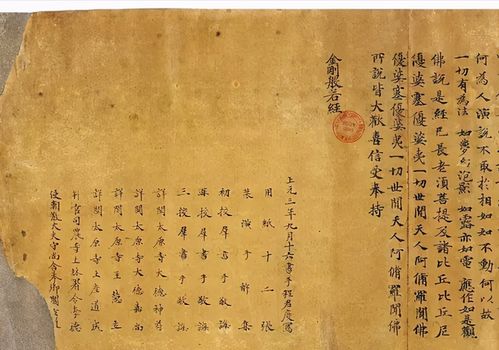 何為人演說不取於相如如不動何以故
一切有為法 如夢幻泡影 如露亦如電 應作如是觀
佛說是經已長老須菩提及諸比丘比丘尼
優婆塞優婆夷一切世間天人阿脩羅聞佛
所說皆大歡喜信受奉持
金剛般若經
上元三年九月十六日書手程君度寫
用紙十二張
裝潢手解集
初校群書手敬誨
再校群書手敬誨
三校群書手敬誨
詳閱太原寺大德神苻
詳閱太原寺大德嘉尚
詳閱太原寺主慧立
詳閱太原寺上座道成
判官司農寺上林署令李德
使朝散大夫守尚舍奉御閻玄道